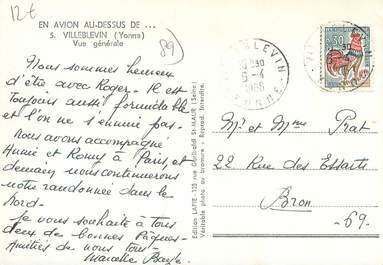 12€
EN AVION AU-DESSUS DE ...
5. VILLEBLEVIN (Yonne)
Vue générale
89
Nous sommes heureux
d'être avec Roger. Il est
toujours aussi formidable
et l'on ne s'ennuie pas.
Nous avons accompagné
Annie et Romy à Paris, et
demain nous continuerons
notre randonnée dans le
Nord.
Je vous souhaite à tous
deux de bonnes Pâques.
Amitiés de nous tous
Marcelle
Edition LAPIE - 123 rue Garibaldi St-MAUR (Seine)
Véritable photo au bromure - Reprod. interdite.
VILLEBLEVIN
30
6-4
1966
YONNE
Mr et Mme Prat
22 Rue des Essarts
Bron
-69-